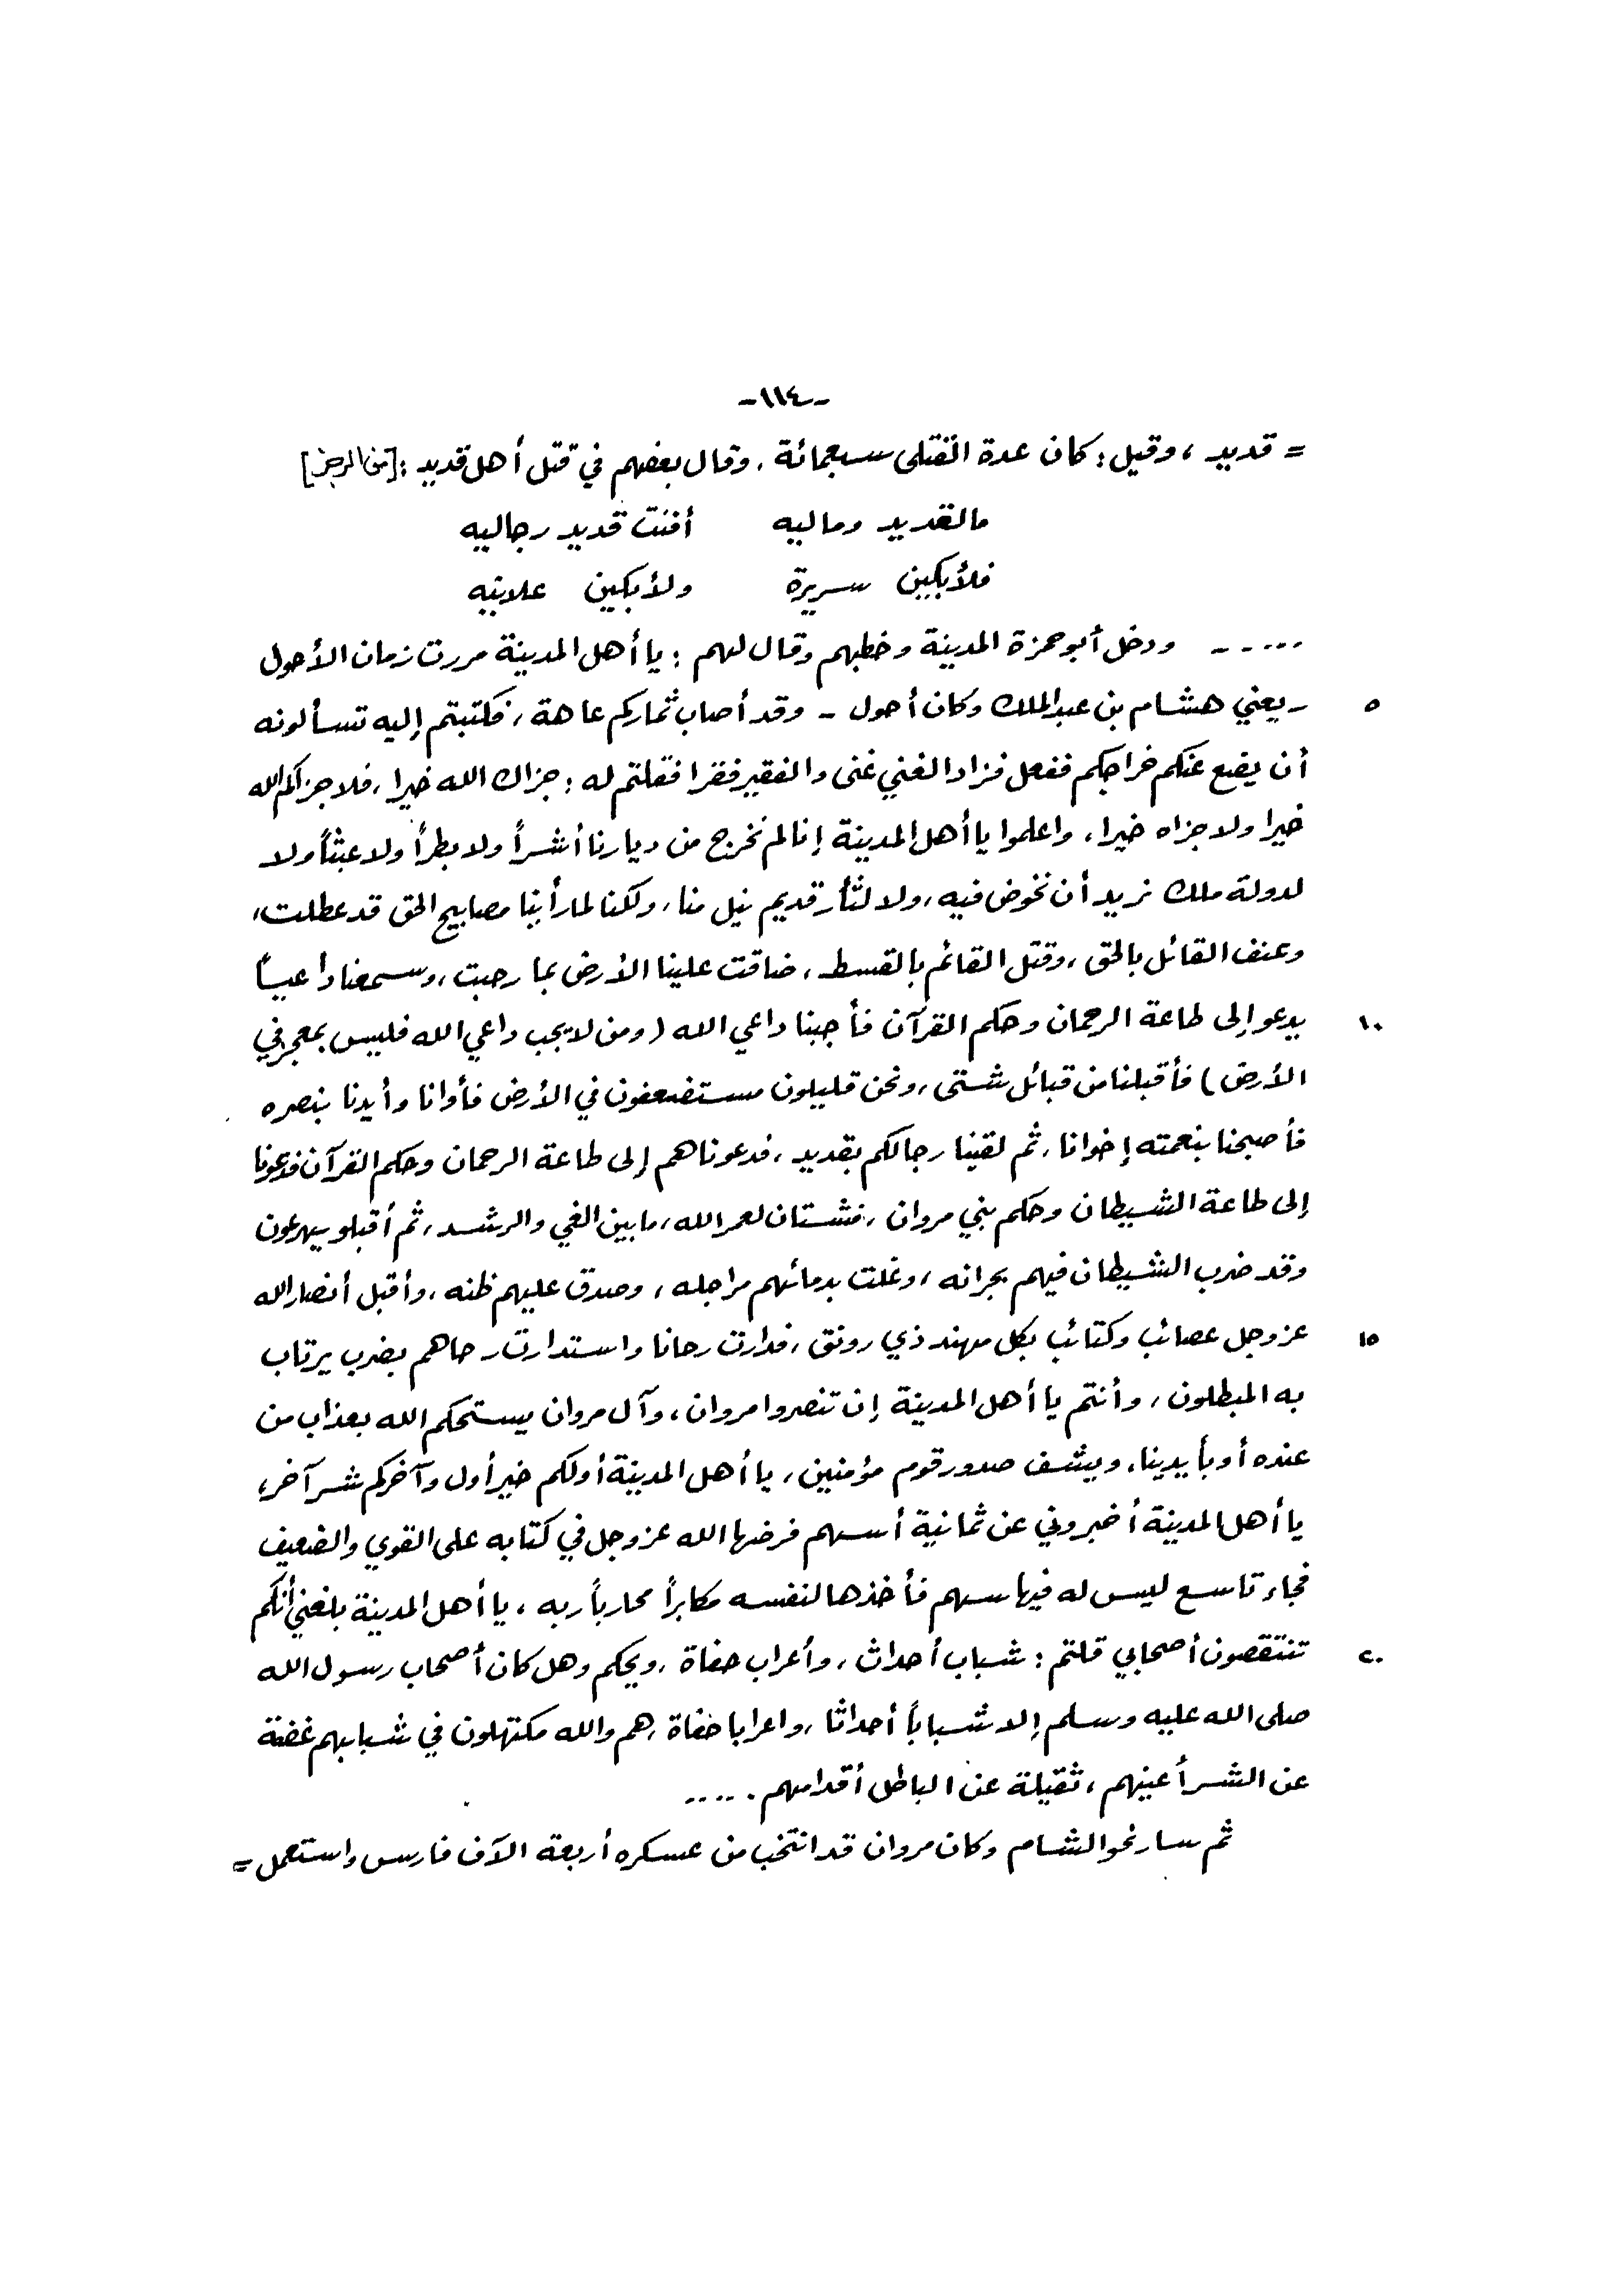 -١١٤-
= قديد ، وقيل : كان عدة القتلى سبعمائة . وقال بعضهم في قتل أهل قديد : [من الرجز]
مالقديد وماليه أفنت قديد رجاليه
فلأبكين سريرة ولأبكين علانيه
..... ودخل أبو حمزة المدينة وخطبهم وقال لهم : يا أهل المدينة مررت زمان الأحول
٥ - يعني هشام بن عبد الملك وكان أحول - وقد أصاب ثماركم عاهة ، فكتبتم إليه تسألونه
أن يضع عنكم خراجكم ففعل فزاد الغني غنى والفقير فقرا فقلتم له : جزاك الله خيرا ، فلا جزاكم الله
خيرا ولا جزاه خيرا ، واعلموا يا أهل المدينة إنا لم نخرج من ديارنا أشراً ولا بطراً ولا عبثاً ولا
لدولة ملك نريد أن نخوض فيه ، ولا لثأر قديم نيل منا ، ولكنا لما رأينا مصابيح الحق قد عطلت ،
وعنف القائل بالحق ، وقتل القائم بالقسط ، ضاقت علينا الأرض بما رحبت ، وسمعنا داعيـاً
١٠ يدعو إلى طاعة الرحمان وحكم القرآن فأجبنا داعي الله ( ومن لا يجب داعي الله فليس بمعجز في
الأرض ) فأقبلنا من قبائل شتى ، ونحن قليلون مستضعفون في الأرض فأوانا وأيدنا بنصره
فأصبحنا بنعمته إخوانا ، ثم لقينا رجالكم بقديد ، فدعوناهم إلى طاعة الرحمان وحكم القرآن فدعونا
إلى طاعة الشيطان وحكم بني مروان ، فشتان لعمر الله ، ما بين الغي والرشد ، ثم أقبلو يهرعون
وقد ضرب الشيطان فيهم بجرانه ، وغلت بدمائهم مراجله ، وصدق عليهم ظنه ، وأقبل أنصار الله
١٥ عز وجل عصائب وكتائب بكل مهند ذي رونق ، فدارت رحانا واستدارت رحاهم بضرب يرتاب
به المبطلون ، وأنتم يا أهل المدينة إن تنصروا مروان ، وآل مروان يستحكم الله بعذاب من
عنده أو بأيدينا ، ويشف صدور قوم مؤمنين ، يا أهل المدينة أولكم خير أول وآخركم شر آخر ،
يا أهل المدينة أخبروني عن ثمانية أسهم فرضها الله عز وجل في كتابه على القوي والضعيف
فجاء تاسع ليس له فيها سهم فأخذها لنفسه مكابراً محارباً ربه ، يا أهل المدينة بلغني أنكم
٢٠ تنتقصون أصحابي قلتم : شباب أحداث ، وأعراب حفاة ، ويحكم وهل كان أصحاب رسول الله
صلى الله عليه وسلم إلا شباباً أحداثا ، واعرابا حفاة ، هم والله مكتهلون في شبابهم غضة
عن الشر أعينهم ، ثقيلة عن الباطل أقدامهم .....
ثم سار نحو الشام وكان مروان قد انتخب من عسكره أربعة الآف فارس واستعمل =